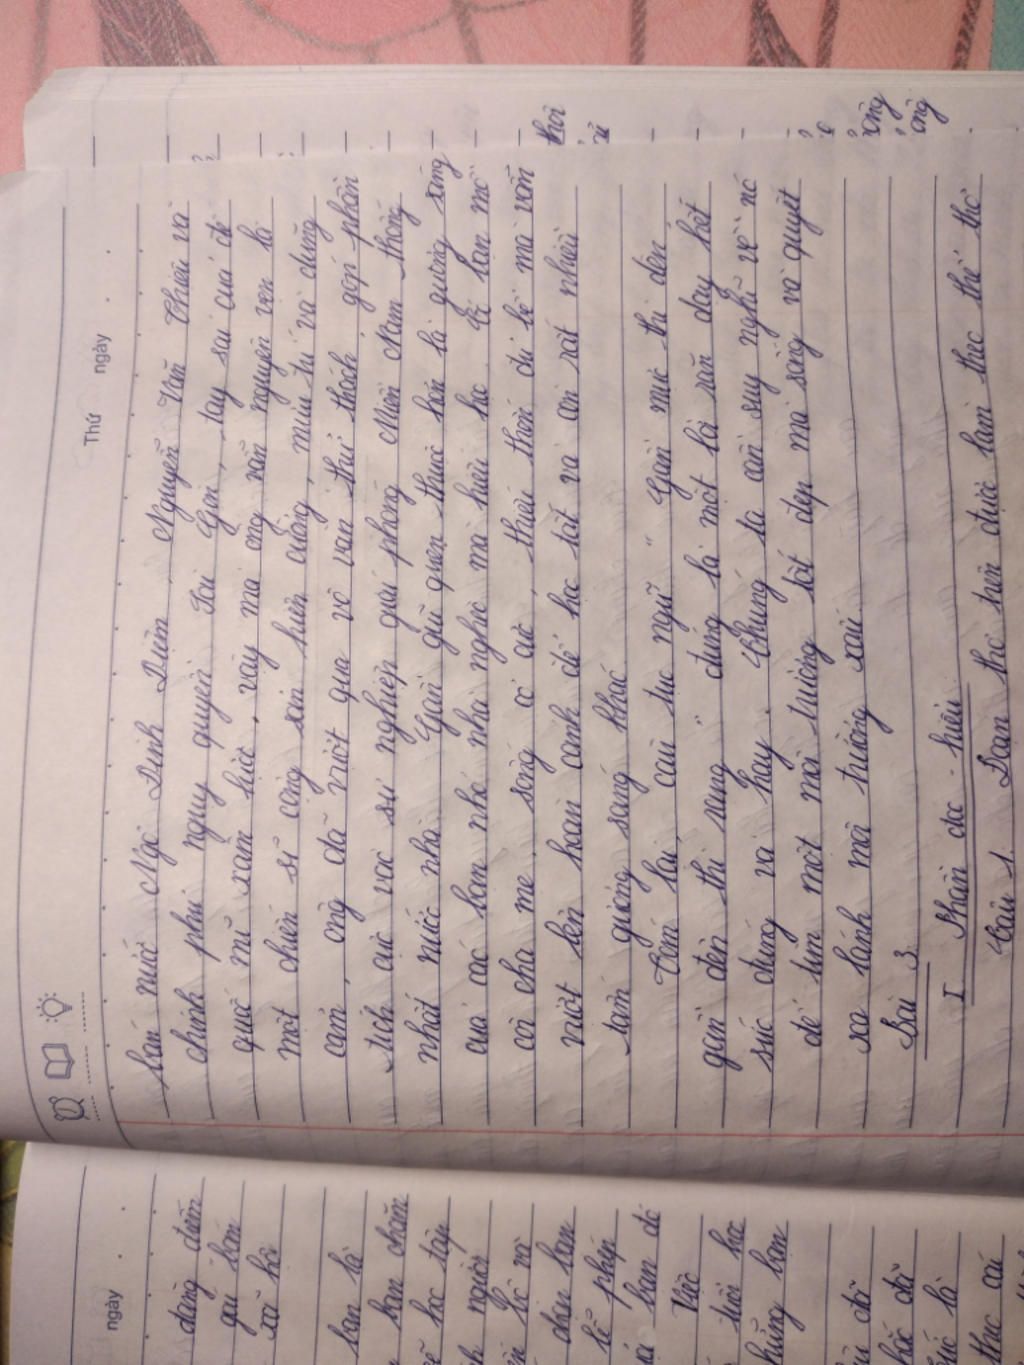 Thứ ngày
bán nước Ngô Đình Diệm, Nguyễn Văn Thiệu và
chính phủ nguỵ quyền Sài Gòn, tay sai của đế
quốc mĩ xâm lược, vậy mà ông vẫn nguyên vẹn là
một chiến sĩ cộng sản kiên cường, mưu trí và dũng
cảm, ông đã vượt qua vô vàn thử thách góp phần
tích cực vào sự nghiệp giải phóng Miền Nam thống
nhất nước nhà. Gần gũi quen thuộc hơn là gương sáng
của các bạn nhỏ nhà nghèo mà hiếu học. Có bạn mồ
côi cha mẹ, sống cơ cực, thiếu thốn đủ bề mà vẫn
vượt lên hoàn cảnh để học tốt và còn rất nhiều
tấm gương sáng khác
Tóm lại, câu tục ngữ " Gần mực thì đen
gần đèn thì sáng " đúng là một lời răn dạy hết
sức đúng và hay. Chúng ta cần suy nghĩ về nó
để tìm một môi trường tốt đẹp mà sống và quyết
xa lánh môi trường xấu
Bài 3
I Phần đọc - hiểu
Câu 1. Đoạn thơ trên được làm theo thể thơ
thơi
ông
ông
ngày
đáng điểm
gũi bạn
xã hội
bạn là
bạn chăm
sẽ học tập
người
bè và
chọn bạn
lễ phép
bạn đó
Việc
lười học
những bạn